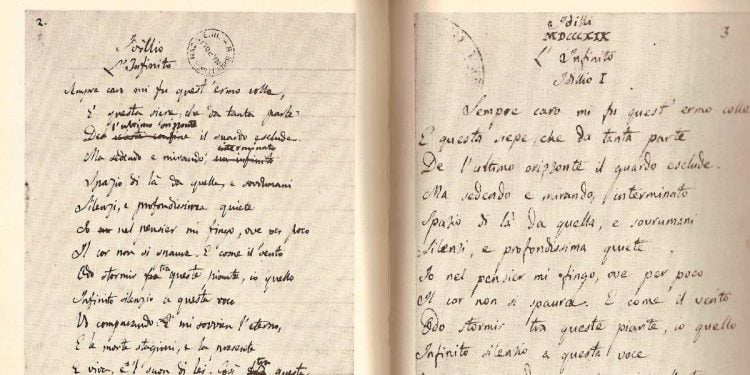 2.
Idillio
L'Infinito
Sempre caro mi fu quest' ermo colle,
E questa siepe, che da tanta parte
l'ultimo orizzonte
De confine il guardo esclude.
interminato
Ma sedendo e mirando, un infinito
Spazio di là da quella, e sovrumani
Silenzi, e profondissima quiete
Io nel pensier mi fingo, ove per poco
Il cor non si spaura. E come il vento
Odo stormir tra queste piante, io quello
Infinito silenzio a questa voce
Vo comparando. E mi sovvien l'eterno,
E le morte stagioni, e la presente
E viva, e 'l suon di lei. Così tra questa
3
Idilli
MDCCCXIX
L' Infinito
Idillio I
Sempre caro mi fu quest' ermo colle
E questa siepe, che da tanta parte
De l'ultimo orizzonte il guardo esclude.
Ma sedendo e mirando, interminato
Spazio di là da quella, e sovrumani
Silenzi, e profondissima quiete
Io nel pensier mi fingo, ove per poco
Il cor non si spaura. E come il vento
Odo stormir tra queste piante, io quello
Infinito silenzio a questa voce